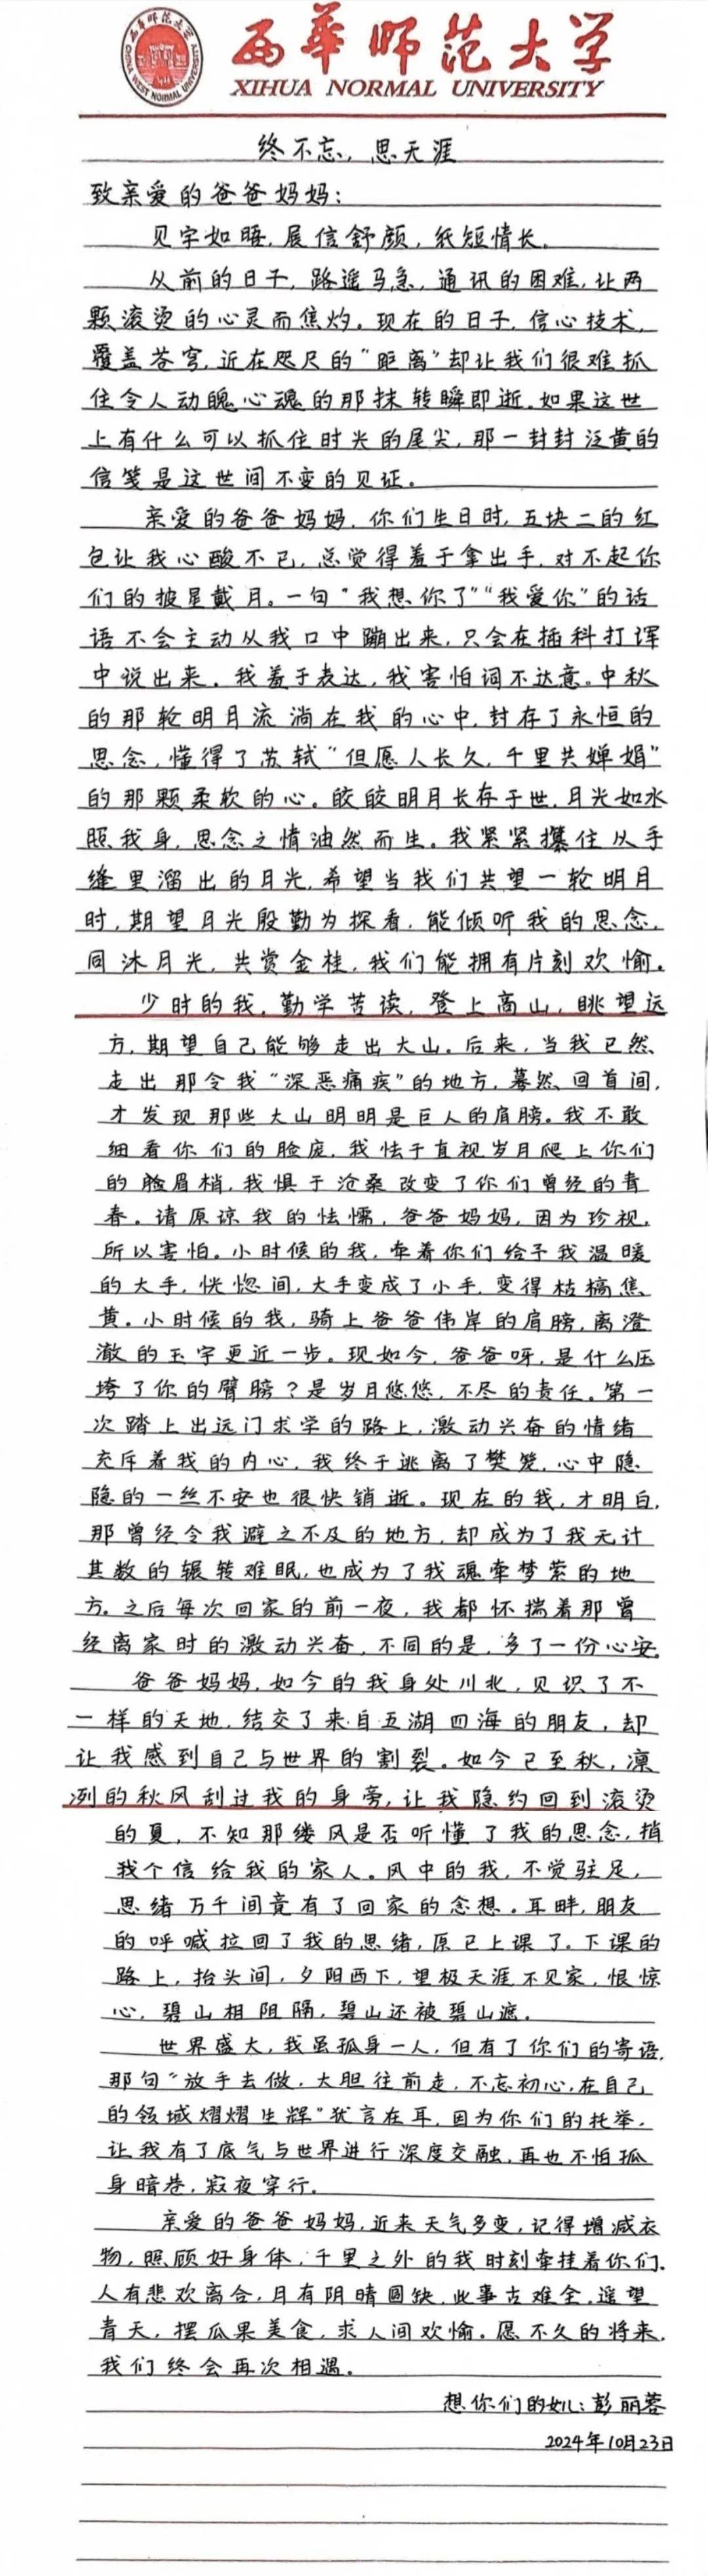 西华师范大学
CHINA WEST NORMAL UNIVERSITY
XIHUA NORMAL UNIVERSITY
终不忘，思天涯
致亲爱的爸爸妈妈：
见字如晤，展信舒颜，纸短情长。
从前的日子，路遥马急，通讯的困难，让两
颗滚烫的心灵而焦灼。现在的日子，信心技术，
覆盖苍穹，近在咫尺的“距离”却让我们很难抓
住令人动魄心魂的那抹转瞬即逝。如果这世
上有什么可以抓住时光的尾尖，那一封封泛黄的
信笺是这世间不变的见证。
亲爱的爸爸妈妈，你们生日时，五块二的红
包让我心酸不已，总觉得羞于拿出手，对不起你
们的披星戴月。一句“我想你了”“我爱你”的话
语不会主动从我口中蹦出来，只会在插科打诨
中说出来。我羞于表达，我害怕词不达意。中秋
的那轮明月流淌在我的心中，封存了永恒的
思念，懂得了苏轼“但愿人长久，千里共婵娟”
的那颗柔软的心。皎皎明月长存于世，月光如水
照我身，思念之情油然而生。我紧紧攥住从手
缝里溜出的月光，希望当我们共望一轮明月
时，期望月光殷勤为探看，能倾听我的思念，
同沐月光，共赏金桂，我们能拥有片刻欢愉。
少时的我，勤学苦读，登上高山，眺望远
方，期望自己能够走出大山。后来，当我已然
走出那令我“深恶痛疾”的地方，蓦然回首间，
才发现那些大山明明是巨人的肩膀。我不敢
细看你们的脸庞，我怯于直视岁月爬上你们
的脸眉梢，我惧于沧桑改变了你们曾经的青
春。请原谅我的怯懦，爸爸妈妈，因为珍视，
所以害怕。小时候的我，牵着你们给予我温暖
的大手，恍惚间，大手变成了小手，变得枯槁焦
黄。小时候的我，骑上爸爸伟岸的肩膀，离澄
澈的玉宇更近一步。现如今，爸爸呀，是什么压
垮了你的臂膀？是岁月悠悠，不尽的责任。第一
次踏上出远门求学的路上，激动兴奋的情绪
充斥着我的内心，我终于逃离了樊笼，心中隐
隐的一丝不安也很快销逝。现在的我，才明白，
那曾经令我避之不及的地方，却成为了我无计
其数的辗转难眠，也成为了我魂牵梦萦的地
方。之后每次回家的前一夜，我都怀揣着那曾
经离家时的激动兴奋，不同的是，多了一份心安。
爸爸妈妈，如今的我身处川北，见识了不
一样的天地，结交了来自五湖四海的朋友，却
让我感到自己与世界的割裂。如今已至秋，凛
冽的秋风刮过我的身旁，让我隐约回到滚烫
的夏，不知那缕风是否听懂了我的思念，捎
我个信给我的家人。风中的我，不觉驻足，
思绪万千间竟有了回家的念想。耳畔，朋友
的呼喊拉回了我的思绪，原已上课了。下课的
路上，抬头间，夕阳西下，望极天涯不见家，恨惊
心，碧山相阻隔，碧山还被碧山遮。
世界盛大，我虽孤身一人，但有了你们的寄语，
那句“放手去做，大胆往前走，不忘初心，在自己
的领域熠熠生辉”犹言在耳，因为你们的托举，
让我有了底气与世界进行深度交融，再也不怕孤
身暗巷，寂夜穿行。
亲爱的爸爸妈妈，近来天气多变，记得增减衣
物，照顾好身体，千里之外的我时刻牵挂着你们。
人有悲欢离合，月有阴晴圆缺，此事古难全。遥望
青天，摆瓜果美食，求人间欢愉。愿不久的将来，
我们终会再次相遇。
想你们的女儿：彭丽蓉
2024年10月23日